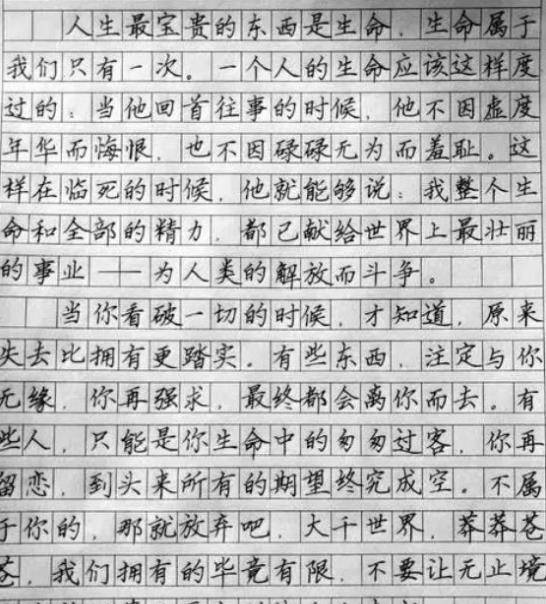 人生最宝贵的东西是生命，生命属于
我们只有一次。一个人的生命应该这样度
过的：当他回首往事的时候，他不因虚度
年华而悔恨，也不因碌碌无为而羞耻。这
样在临死的时候，他就能够说：我整个生
命和全部的精力，都已献给世界上最壮丽
的事业——为人类的解放而斗争。
当你看破一切的时候，才知道，原来
失去比拥有更踏实。有些东西，注定与你
无缘，你再强求，最终都会离你而去。有
些人，只能是你生命中的匆匆过客，你再
留恋，到头来所有的期望终究成空。不属
于你的，那就放弃吧，大千世界，莽莽苍
苍，我们拥有的毕竟有限，不要让无止境